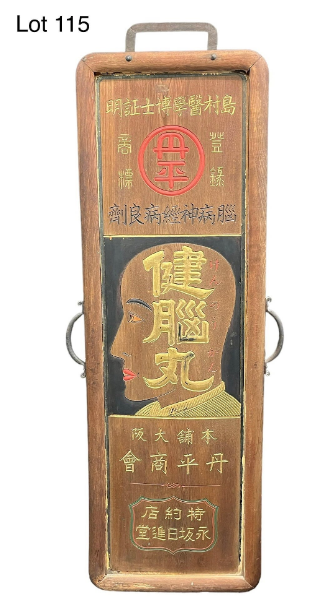 Lot 115
島村醫學博士証明
登録
商標
丹平
腦病神經病良劑
健腦丸
本舗大阪
丹平商會
特約店
永坂日進堂